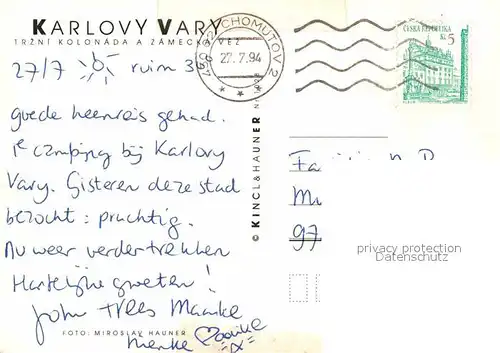 KARLOVY VARY
TRŽNÍ KOLONÁDA A ZÁMECKÁ VĚŽ
27/7 ruim 3
goede heenreis gehad.
1e camping bij Karlovy
Vary. Gisteren deze stad
bezocht: prachtig.
Nu weer verder trekken
Hartelijke groeten!
John Trees Maaike
Menke
FOTO: MIROSLAV HAUNER
© KINCL & HAUNER
CHOMUTOV 2
27.7.94
ČESKÁ REPUBLIKA
Kč 5
Fa
Mu
97
privacy protection
Datenschutz